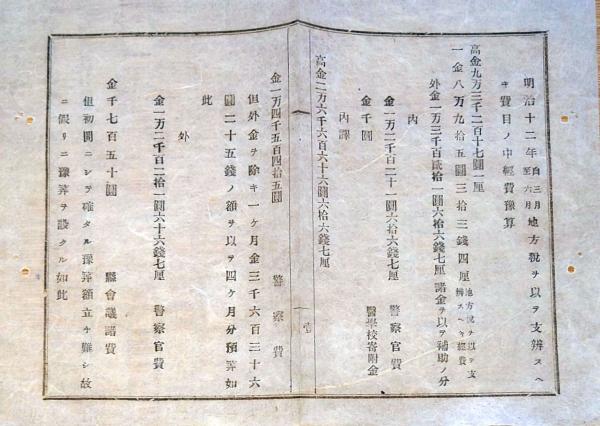 明治十二年自三月至六月地方税ヲ以テ支辨スヘ
キ費目ノ中經費豫算
高金九万三千二百十七圓一厘
一金八万九拾五圓三拾三錢四厘 地方税ヲ以テ支辨スヘキ經費
外金一万三千百貳拾一圓六拾六錢七厘 諸金ヲ以テ補助ノ分
內
金一万二千百二十一圓六拾六錢七厘 警察官費
金千圓 醫學校寄附金
內譯
高金二万六千六百六十六圓六拾六錢七厘
壹
金一万四千五百四拾五圓 警察費
但外金ヲ除キ一ケ月金三千六百三十六
圓二十五錢ノ額ヲ以テ四ケ月分預算如
此
外
金一万二千百二拾一圓六十六錢七厘 警察官費
金千七百五十圓 縣會議諸費
但初開ニシテ確タル豫算額立ケ難シ故
ニ假リニ豫算ヲ設タル如此